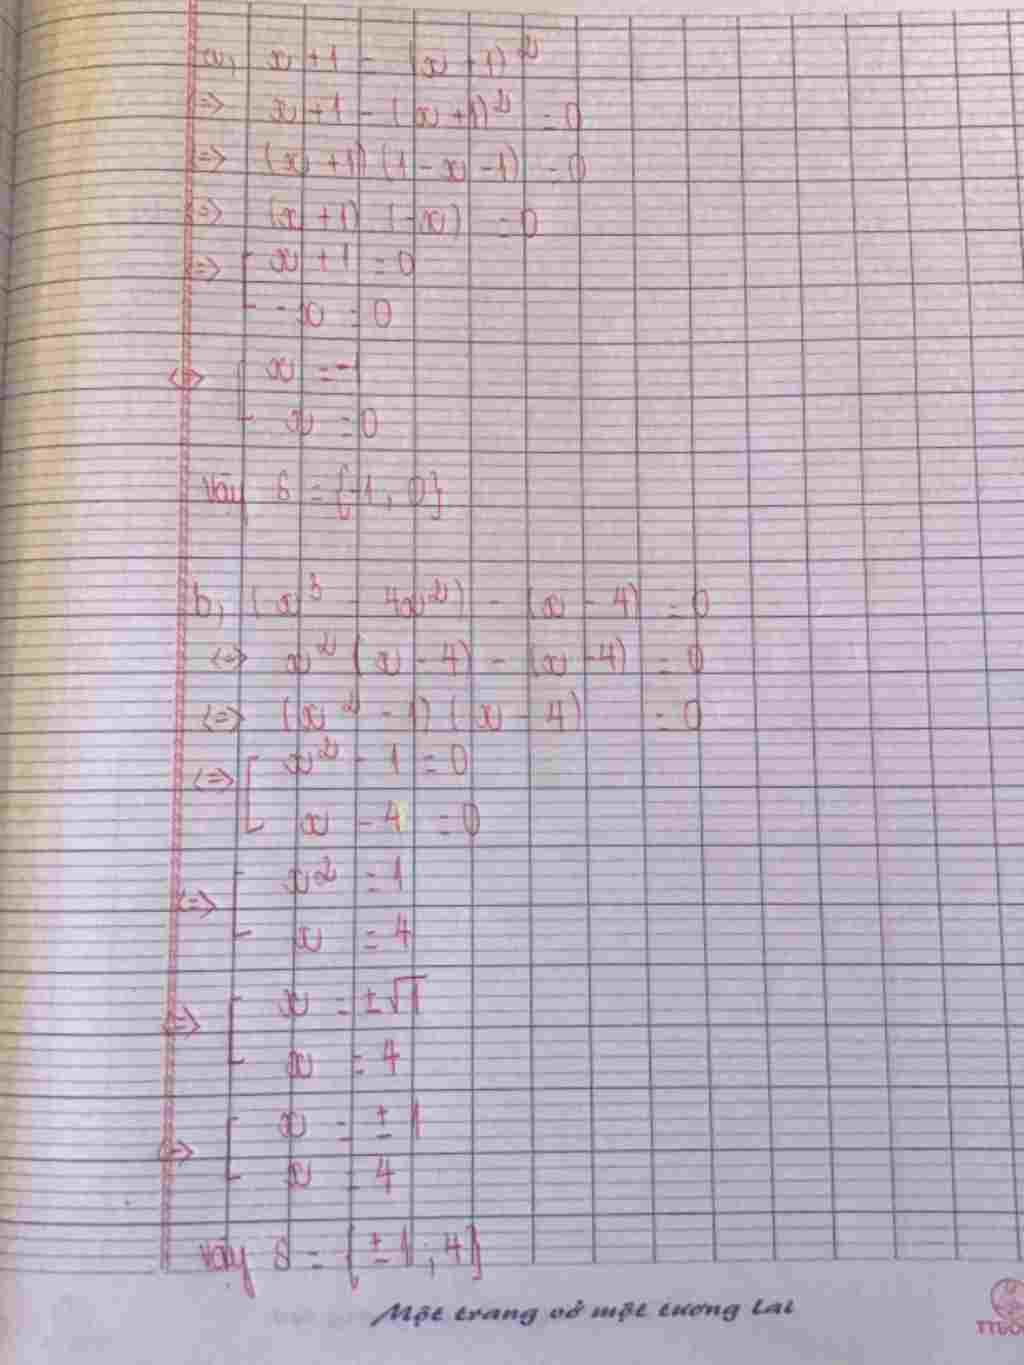 a, x + 1 = (x + 1)²
=> x + 1 - (x + 1)² = 0
=> (x + 1) (1 - x - 1) = 0
=> (x + 1) (-x) = 0
=> [ x + 1 = 0
- x = 0
<=> [ x = -1
x = 0
Vậy S = {-1, 0}
b, (x³ - 4x²) - (x - 4) = 0
<=> x² (x - 4) - (x - 4) = 0
<=> (x² - 1) (x - 4) = 0
<=> [ x² - 1 = 0
x - 4 = 0
<=> [ x² = 1
x = 4
=> [ x = ±√1
x = 4
=> [ x = ± 1
x = 4
Vậy S = {± 1 ; 4}
Một trang vở một tương lai